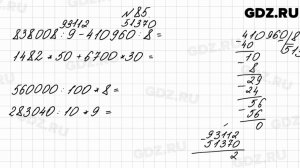 GDZ.RU
№ 85
93112 51370
838008 : 9 - 410960 : 8 =
1482 * 50 + 6700 * 30 =
560000 : 100 * 8 =
283040 : 10 * 9 =
410960 8
-40 513
10
- 8
29
-24
56
-56
0
-93112
51370
2
GDZ.RU